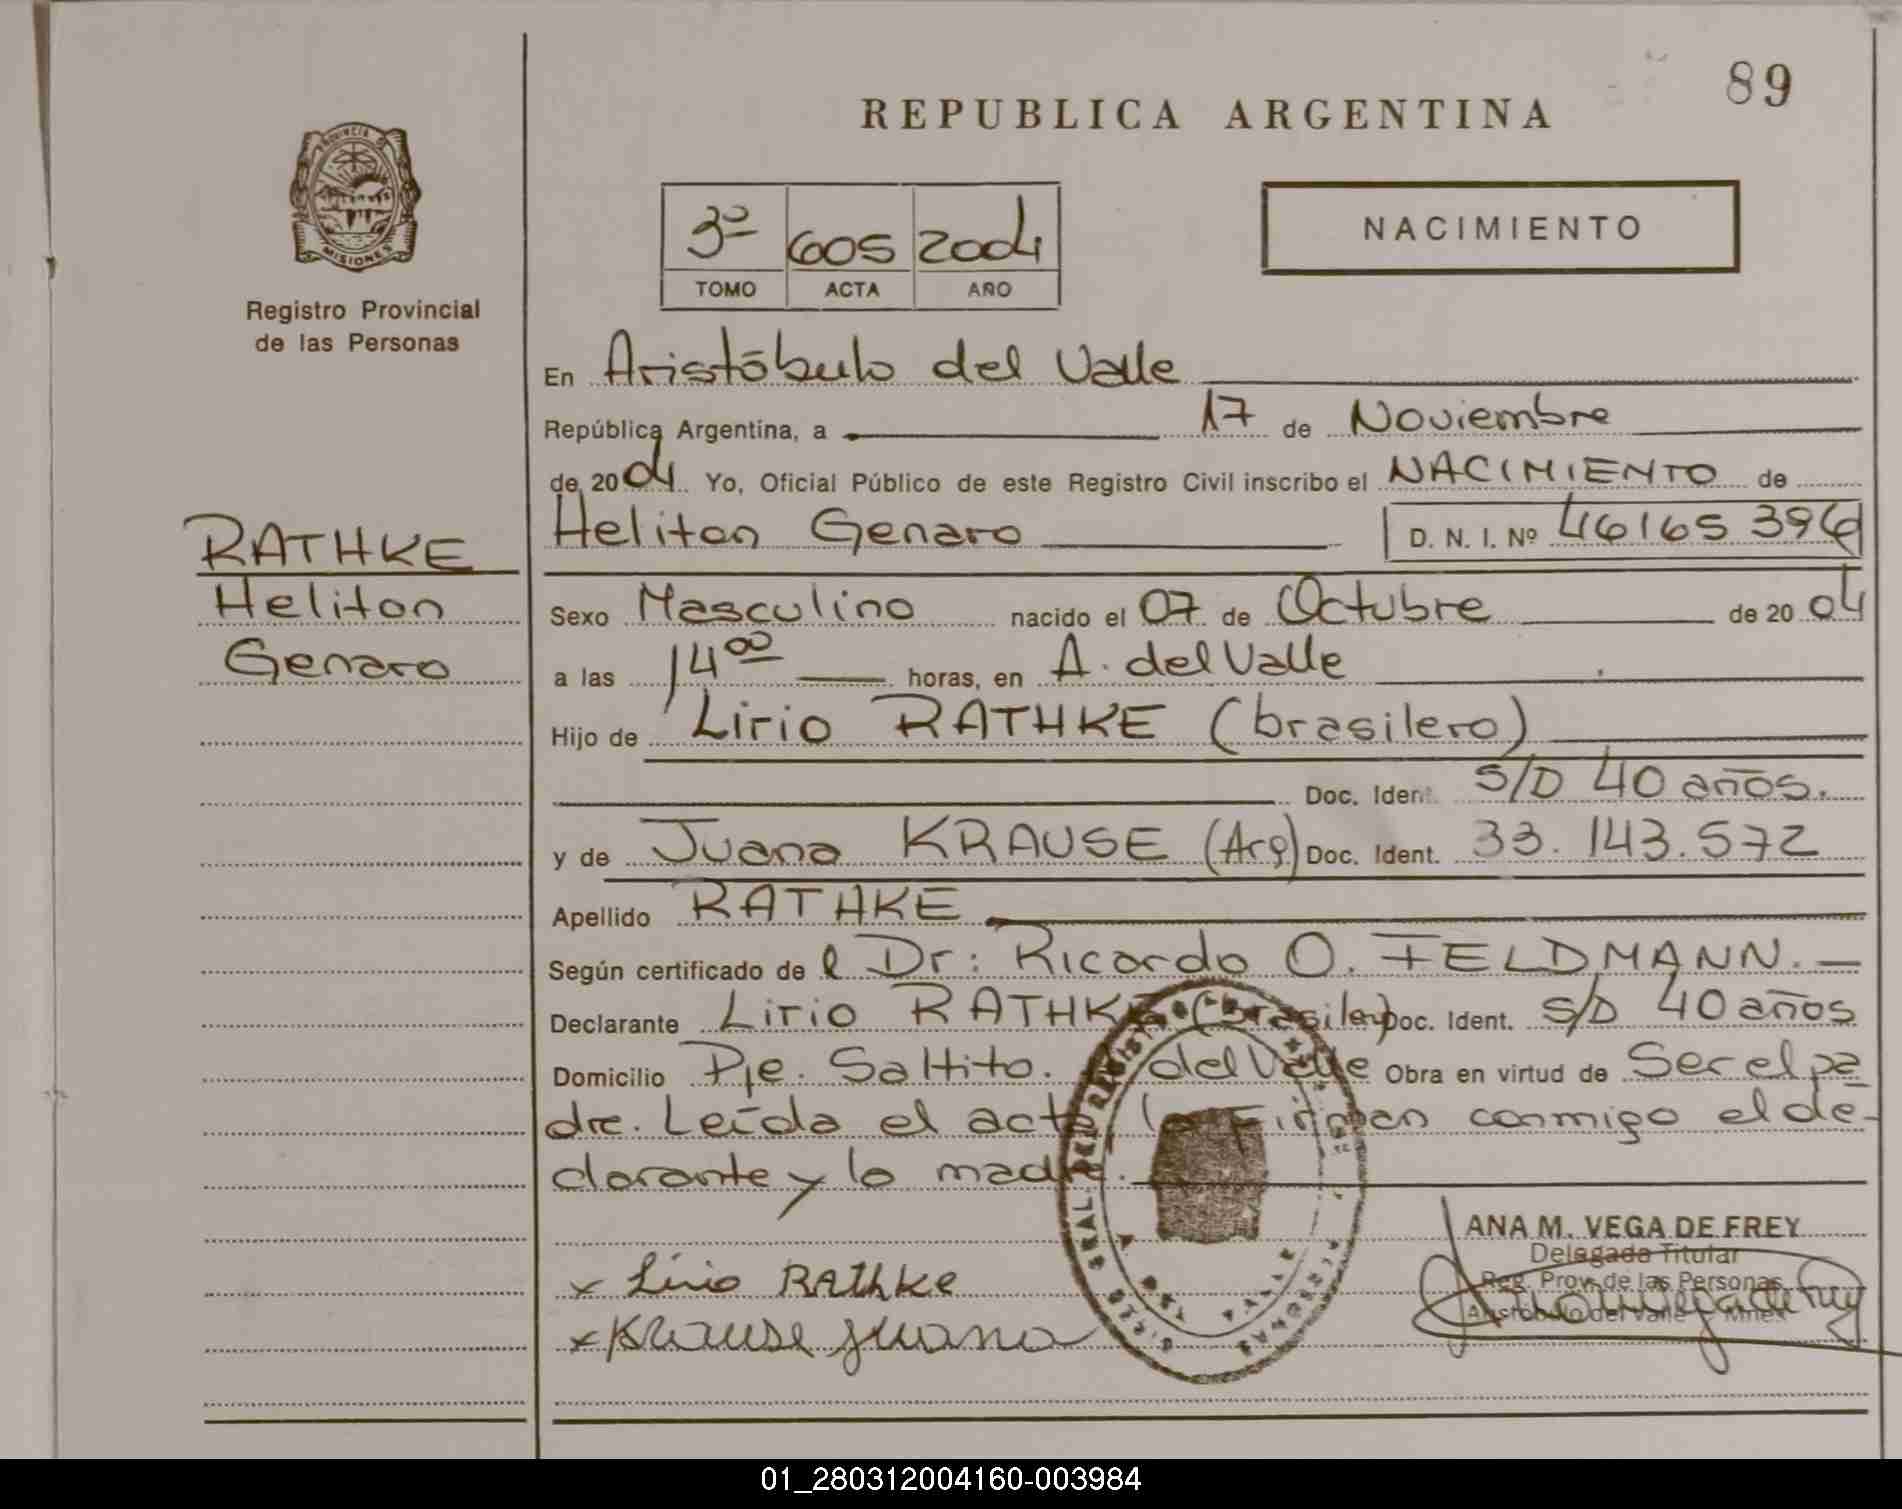 89
REPUBLICA ARGENTINA
PROVINCIA DE
MISIONES
3º 605 2004
TOMO ACTA AÑO
NACIMIENTO
Registro Provincial
de las Personas
En Aristóbulo del Valle
República Argentina, a 17 de Noviembre
de 2004 Yo, Oficial Público de este Registro Civil inscribo el NACIMIENTO de
RATHKE
Heliton
Genaro
Heliton Genaro D. N. I. Nº 46165 396
Sexo Masculino nacido el 07 de Octubre de 2004
a las 14 00 horas, en A. del Valle
Hijo de Lirio RATHKE (brasilero)
Doc. Ident. S/D 40 años.
y de Juana KRAUSE (Arg) Doc. Ident. 33.143.572
Apellido RATHKE
Según certificado de l Dr: Ricardo O. FELDMANN.
Declarante Lirio RATHKE (brasilero) Doc. Ident. S/D 40 años
Domicilio Pje. Saltito. del Valle Obra en virtud de Ser el pa
dre. Leída el acta la Firman conmigo el de-
clarante y la madre.
ANA M. VEGA DE FREY
Delegada Titular
Reg. Prov. de las Personas
Aristóbulo del Valle - Mnes
x Lirio RAthke
x Krause Juana
01_280312004160-003984